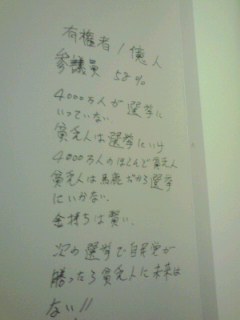 有権者 1億人
参議員 58%
4000万人が選挙に
いっていない
貧乏人は選挙にいけ
4000万人のほとんど貧乏人
貧乏人は馬鹿だから選挙
にいかない。
金持ちは賢い。
次の選挙で自民党が
勝ったら貧乏人に未来は
ない!!